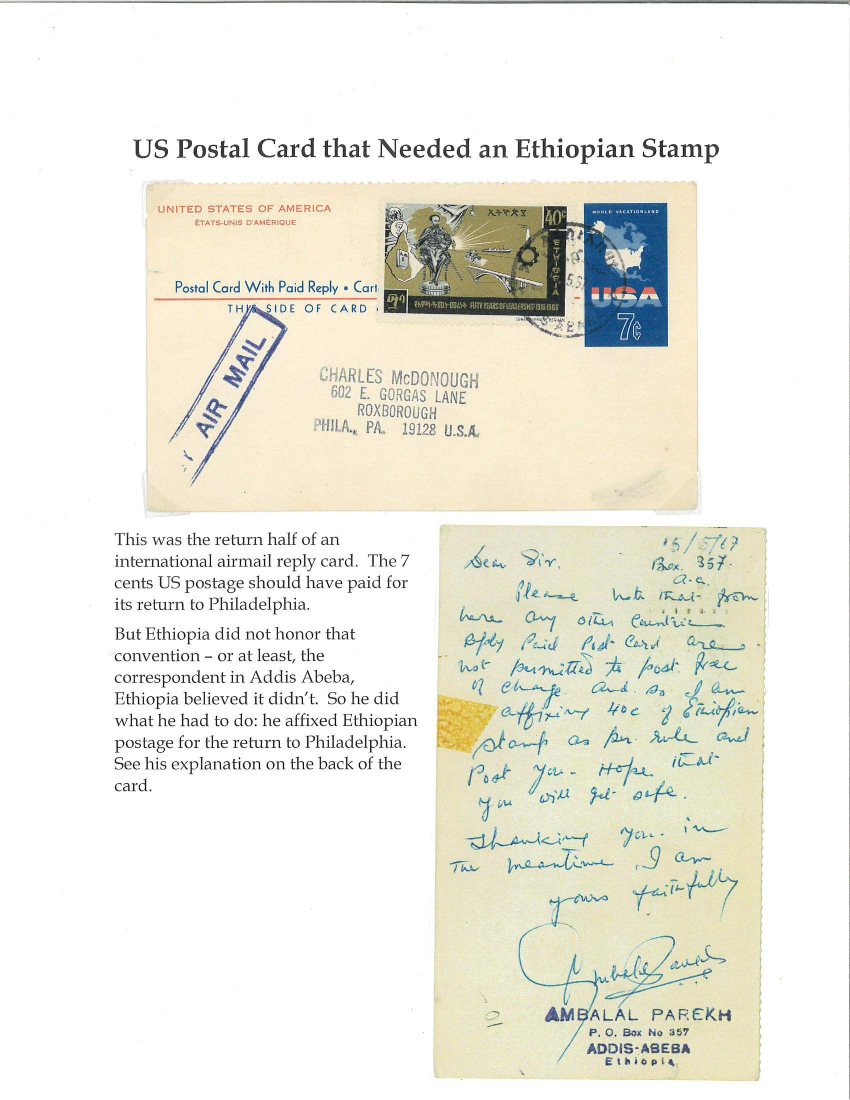 US Postal Card that Needed an Ethiopian Stamp
UNITED STATES OF AMERICA
ÉTATS-UNIS D'AMÉRIQUE
Postal Card With Paid Reply • Cart
THIS SIDE OF CARD
ኢትዮጵያ
40c
ETHIOPIA
FIFTY YEARS OF LEADERSHIP 1916-1966
WORLD VACATIONLAND
USA
7c
AIR MAIL
CHARLES McDONOUGH
602 E. GORGAS LANE
ROXBOROUGH
PHILA., PA. 19128 U.S.A.
This was the return half of an
international airmail reply card. The 7
cents US postage should have paid for
its return to Philadelphia.
But Ethiopia did not honor that
convention – or at least, the
correspondent in Addis Abeba,
Ethiopia believed it didn't. So he did
what he had to do: he affixed Ethiopian
postage for the return to Philadelphia.
See his explanation on the back of the
card.
15/5/67
Dear Sir. Box. 357.
A.a.
Please note that from
here any other Countries
Reply Paid Post Card are
not permitted to post free
of charge and so I am
affixing 40c of Ethiopian
stamp as per rule and
Post you. Hope that
you will get safe.
Thanking you in
The meantime, I am
yours faithfully
AMBALAL PAREKH
P. O. Box No 357
ADDIS-ABEBA
Ethiopia